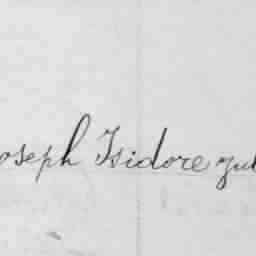 oseph Isidore